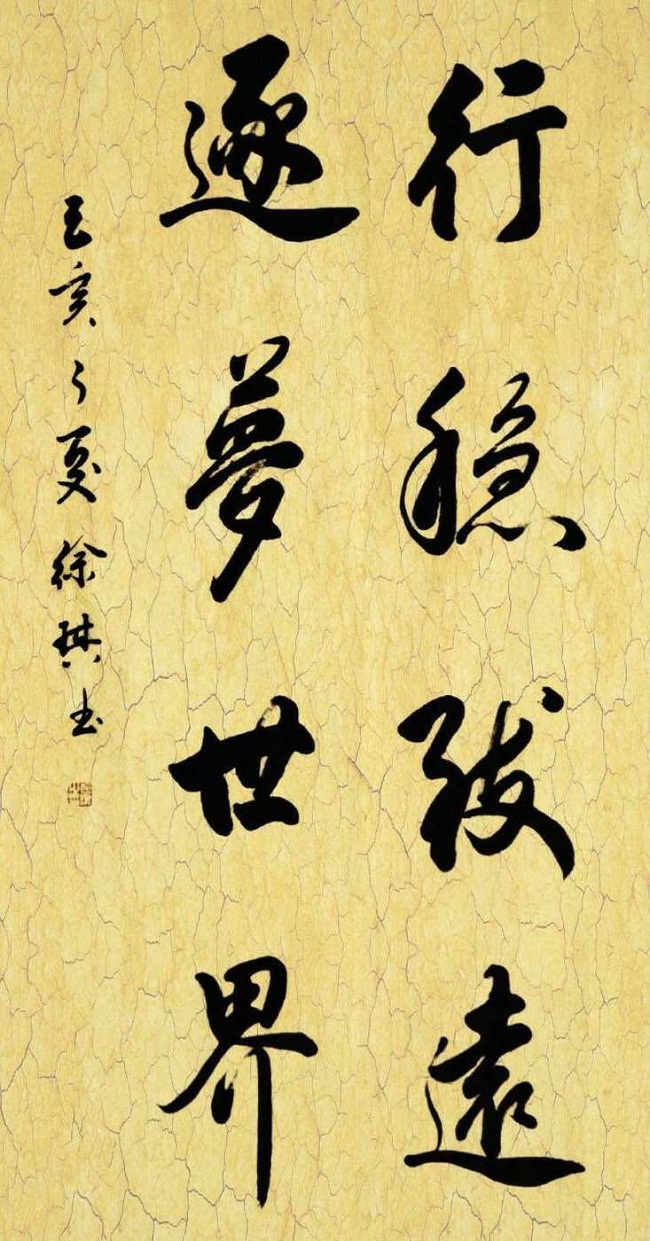 行穏致遠
逐夢世界
己亥之夏徐琪书